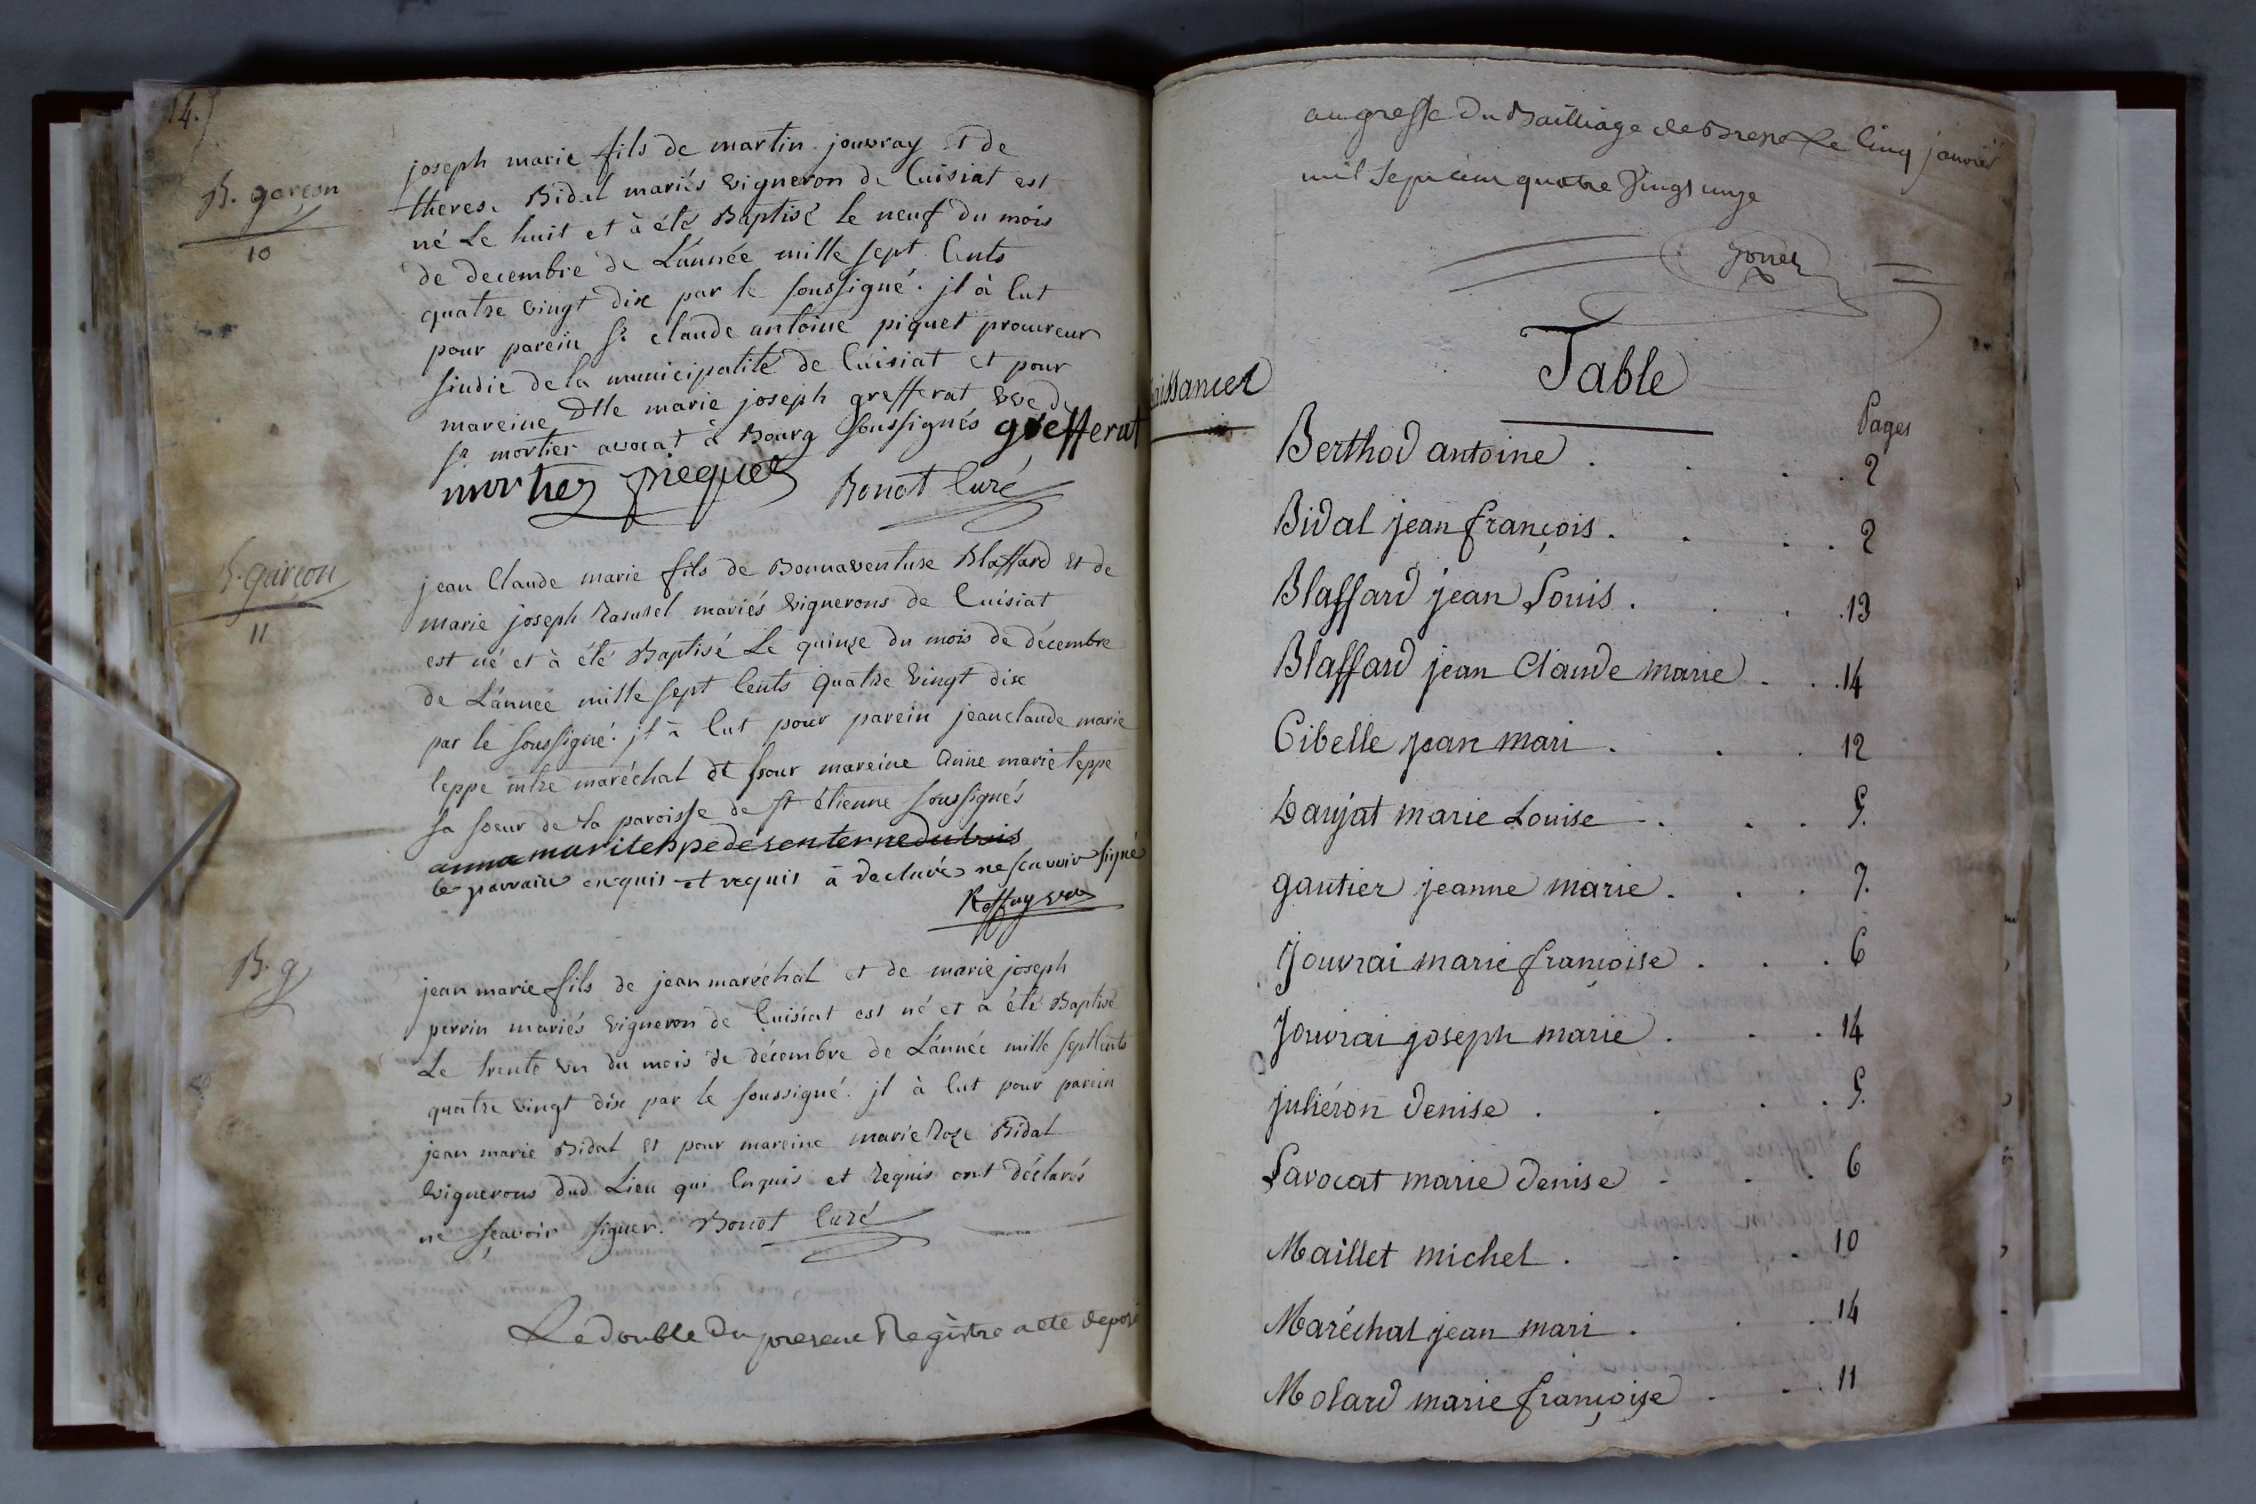 14.
B. garçon
10
joseph marie fils de martin jouvray et de
therese Bidal mariés vigneron de Cuisiat est
né Le huit et à été Baptisé le neuf du mois
de decembre de L'année mille sept Cents
quatre vingt dix par le soussigné. jl à Eut
pour parein sr. claude antoine piquet procureur
sindic de la municipalité de Cuisiat et pour
mareine Dlle marie joseph grefferat vve de
sr mortier avocat à Bourg soussignés grefferat
mortier piequet Bonot Curé
B. garçon
11
jean Claude marie fils de Bonnaventure Blaffard et de
marie joseph mariés vignerons de Cuisiat
est né et à été Baptisé Le quinze du mois de décembre
de L'année mille sept Cents quatre vingt dix
par le soussigné. jl à Eut pour parein jean claude marie
leppe mtre maréchal et pour mareine anne marie leppe
sa soeur de la paroisse de st étienne soussignés
le parrain enquis et requis a declaré ne scavoir signé
B. g
jean marie fils de jean maréchal et de marie joseph
perrin mariés vigneron de Cuisiat est né et à été Baptisé
Le trente un du mois de décembre de L'année mille sept Cents
quatre vingt dix par le soussigné. jl à Eut pour parein
jean marie Bidal et pour mareine marie Roze Bidal
vignerons dud Lieu qui Enquis et Requis ont déclarés
ne sçavoir signer. Bonot Curé
Le double du present Registre a été deposé
au greffe du Bailliage de Bresse Le Cinq janvier
mil sept cent quatre vingt onze
Table
Naissances
Pages
Berthod antoine . . . . 2
Bidal jean françois . . . . 2
Blaffard jean Louis . . . . 13
Blaffard jean Claude marie . . . 14
Cibelle jean mari . . . 12
Daujat marie Louise . . . 5.
gautier jeanne marie . . . 7.
Jouvrai marie françoise . . . 6
Jouvrai joseph marie . . . 14
juliéron denise . . . . 5.
Lavocat marie denise . . . 6
Maillet michel . . . 10
Maréchal jean mari . . . 14
Molard marie françoise . . . 11